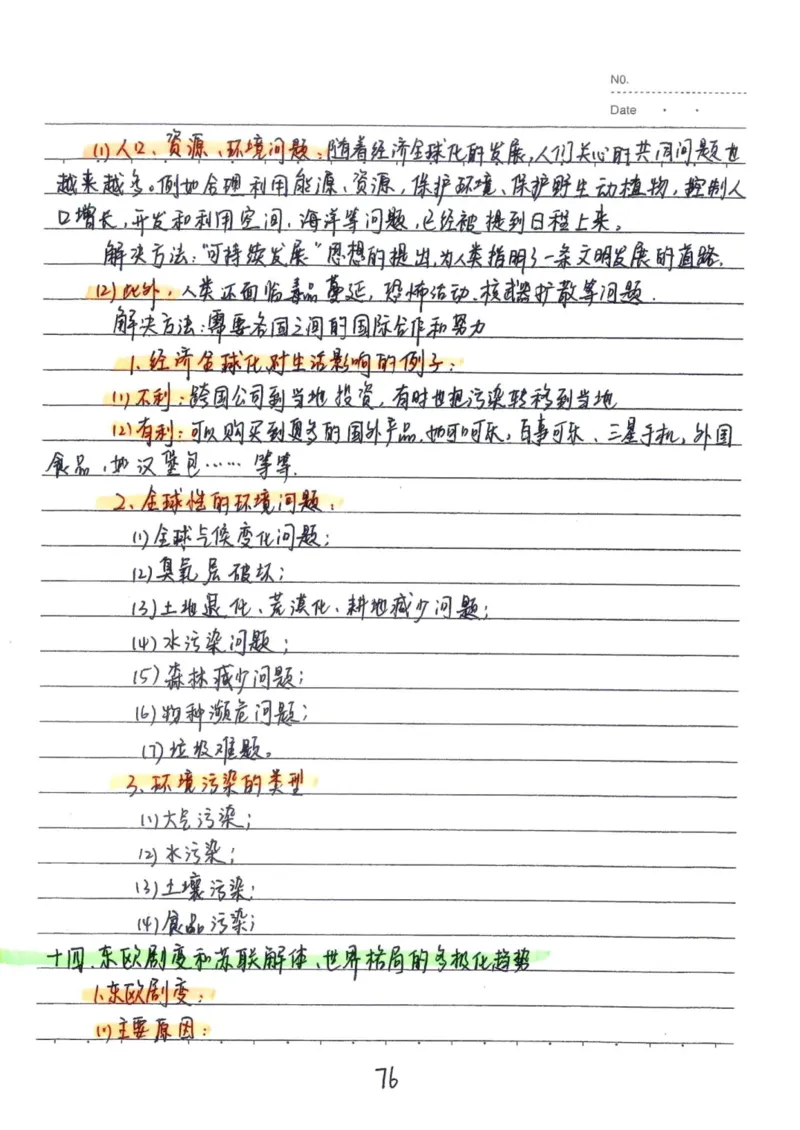 NO.
Date
(1)人口、资源、环境问题:随着经济全球化的发展,人们关心的共同问题也
越来越多。例如合理利用能源、资源,保护环境、保护野生动植物,控制人
口增长,开发和利用空间,海洋等问题,已经被提到日程上来。
解决方法:"可持续发展"思想的提出,为人类指明了一条文明发展的道路.
(2)此外,人类还面临毒品蔓延,恐怖活动、核武器扩散等问题.
解决方法:需要各国之间的国际合作和努力
1.经济全球化对生活影响的例子:
(1)不利:跨国公司到当地投资,有时也把污染转移到当地
(2)有利:可以购买到更多的国外产品,如可口可乐,百事可乐、三星手机,外国
食品,如汉堡包……等等.
2、全球性的环境问题:
(1)全球气候变化问题;
(2)臭氧层破坏;
(3)土地退化、荒漠化、耕地减少问题;
(4)水污染问题;
(5)森林减少问题;
(6)物种濒危问题;
(7)垃圾难题。
3、环境污染的类型
(1)大气污染;
(2)水污染;
(3)土壤污染;
(4)食品污染;
十四.东欧剧变和苏联解体、世界格局的多极化趋势
1.东欧剧变:
(1)主要原因:
76